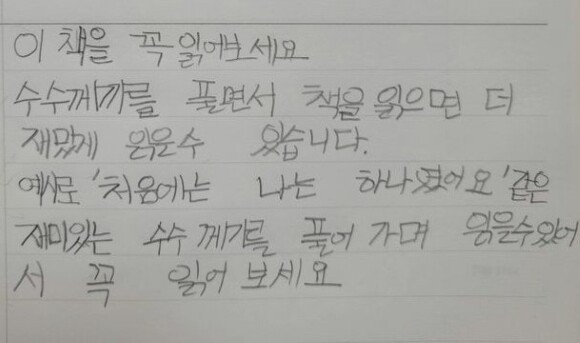 이 책을 꼭 읽어보세요
수수께끼를 풀면서 책을 읽으면 더
재밌게 읽을수 있습니다.
예시로 '처음에는 나는 하나였어요'같은
재미있는 수수께끼를 풀어 가며 읽을수있어
서 꼭 읽어 보세요